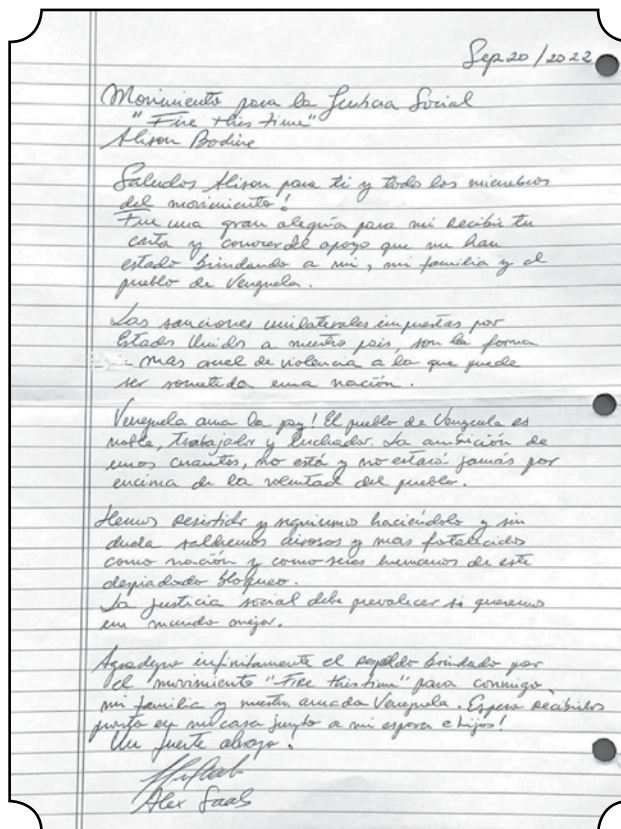 Sep 20 / 2022
Movimiento para la Justicia Social
"Fire this time"
Alison Bodine
Saludos Alison para ti y todos los miembros
del movimiento!
Fue una gran alegría para mi recibir tu
carta y conocer del apoyo que me han
estado brindando a mi, mi familia y el
pueblo de Venezuela.
Las sanciones unilaterales impuestas por
Estados Unidos a nuestro país, son la forma
mas cruel de violencia a la que puede
ser sometida una nación.
Venezuela ama la paz! El pueblo de Venezuela es
noble, trabajador y luchador. La ambición de
unos cuantos, no está y no estará jamás por
encima de la voluntad del pueblo.
Hemos resistido y seguiremos haciéndolo y sin
duda saldremos airosos y mas fortalecidos
como nación y como seres humanos de este
despiadado bloqueo.
La justicia social debe prevalecer si queremos
un mundo mejor.
Agradezco infinitamente el respaldo brindado por
el movimiento "Fire this time" para conmigo,
mi familia y nuestra amada Venezuela. Espero recibirlos
pronto en mi casa junto a mi esposa e hijos!
Un fuerte abrazo!
Alex Saab